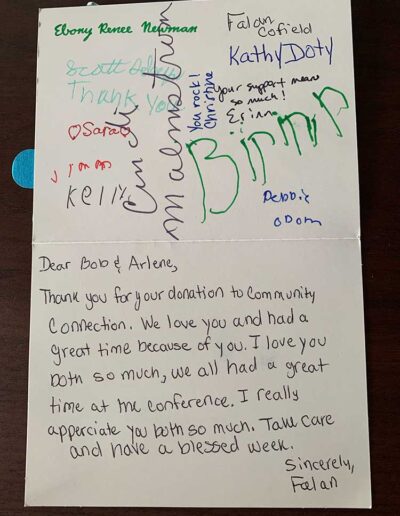 Ebony Renee Newman
Falan
Cofield
Kathy Doty
Scott
Thank you
Cindi
Malmstrom
You rock!
Christine
Your support means
so much!
Erinn
♡Sara♡
Kelly
Debbie
Odom
Dear Bob & Arlene,
Thank you for your donation to Community
Connection. We love you and had a
great time because of you. I love you
both so much, we all had a great
time at the conference. I really
apperciate you both so much. Take care
and have a blessed week.
Sincerely,
Falan